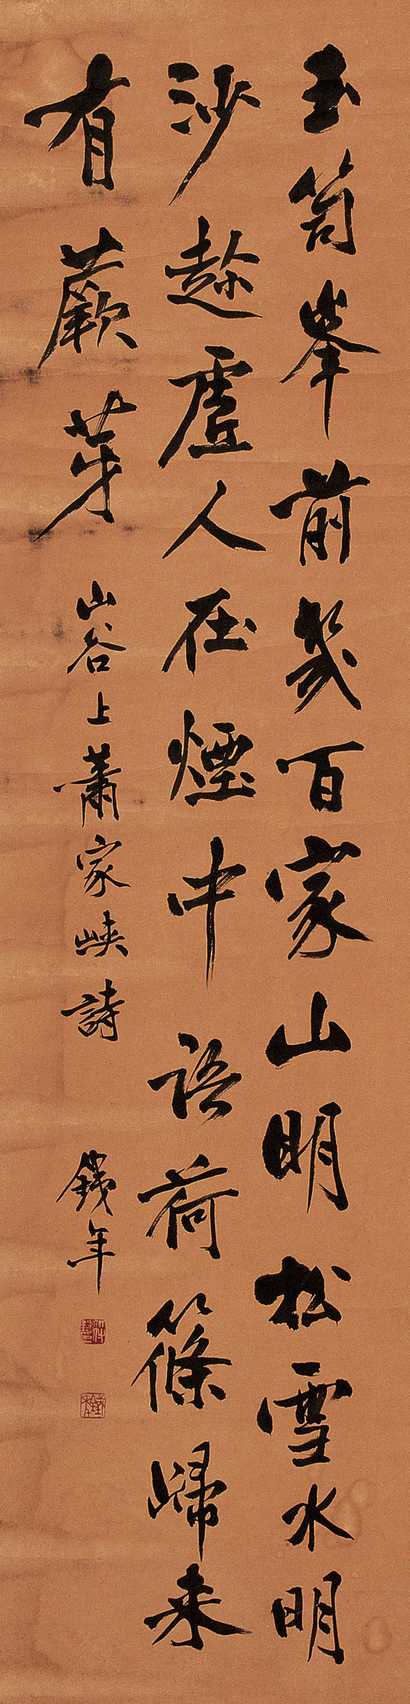 玉笥峯前幾百家山明松雪水明
沙趂虛人在煙中語荷篠歸来
有蕨芽
山谷上蕭家峽詩
錢年